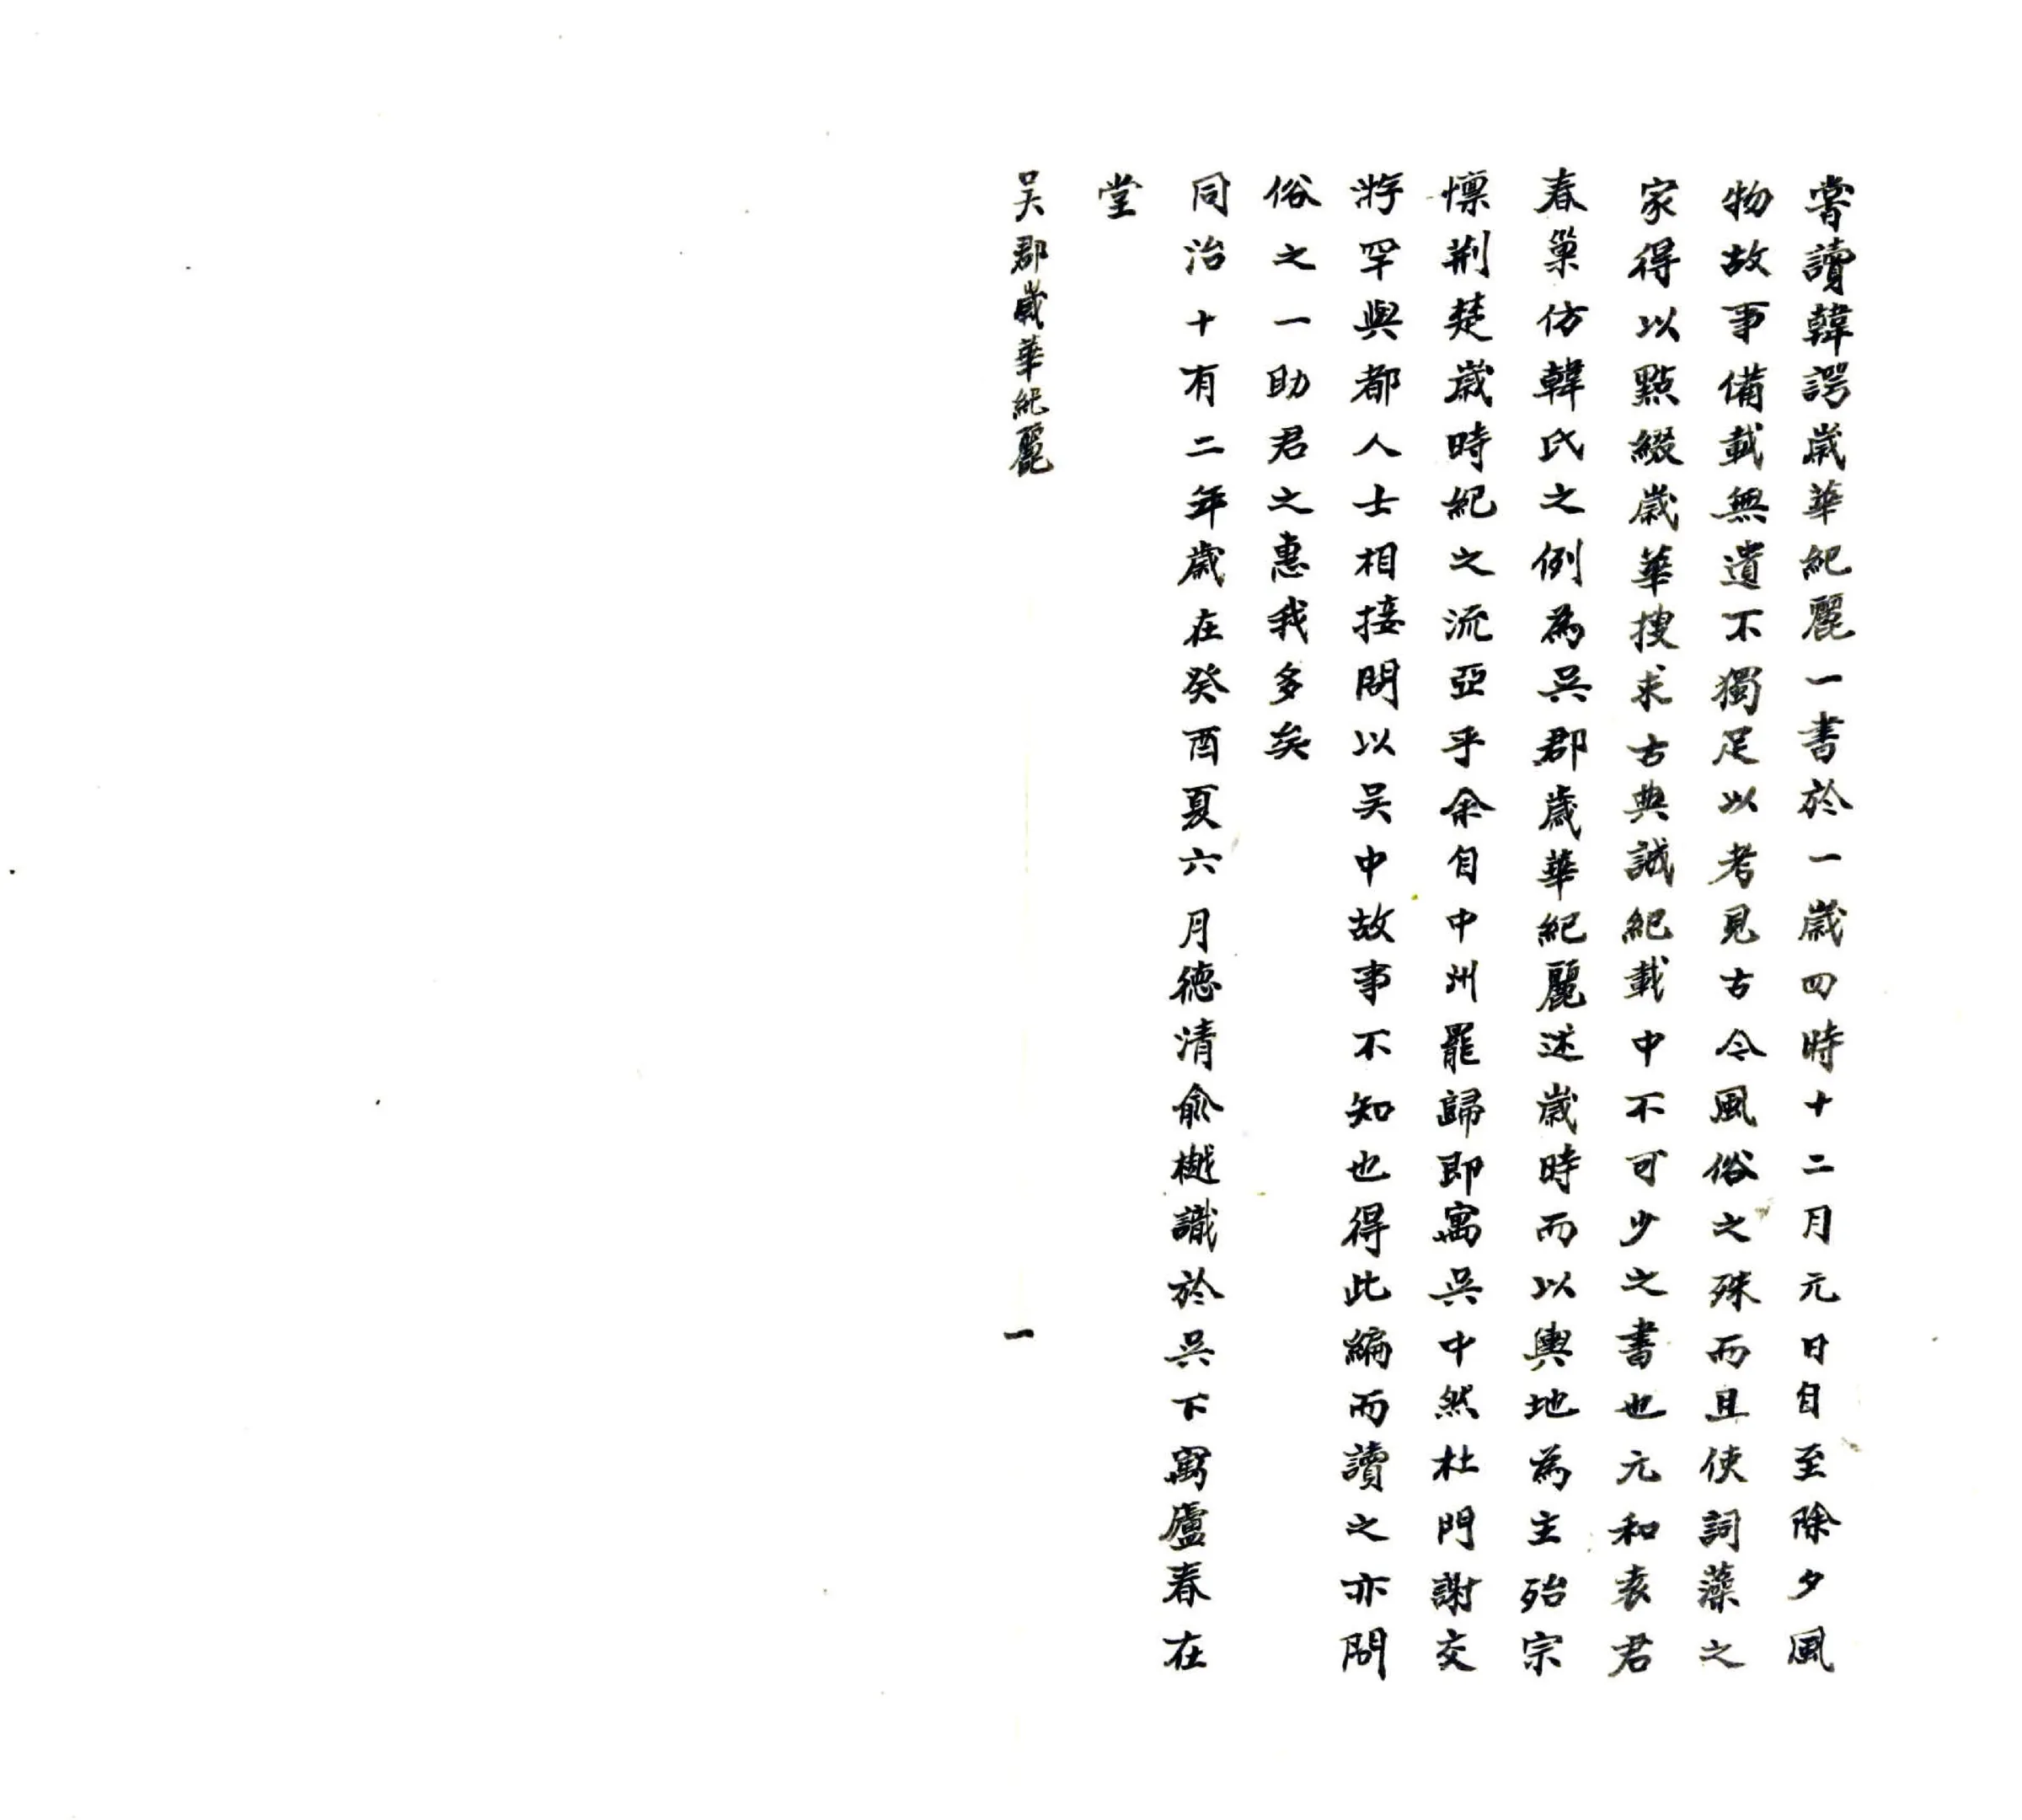 嘗讀韓諤歲華紀麗一書於一歲四時十二月元日自至除夕風
物故事備載無遺不獨足以考見古今風俗之殊而且使詞藻之
家得以點綴歲華搜求古典誠紀載中不可少之書也元和袁君
春巢仿韓氏之例為吳郡歲華紀麗述歲時而以輿地為主殆宗
懍荆楚歲時紀之流亞乎余自中州罷歸即寓吳中然杜門謝交
游罕與都人士相接問以吴中故事不知也得此編而讀之亦問
俗之一助君之惠我多矣
同治十有二年歲在癸酉夏六月德清俞樾識於吳下寓廬春在
堂
吴郡歲華紀麗
一